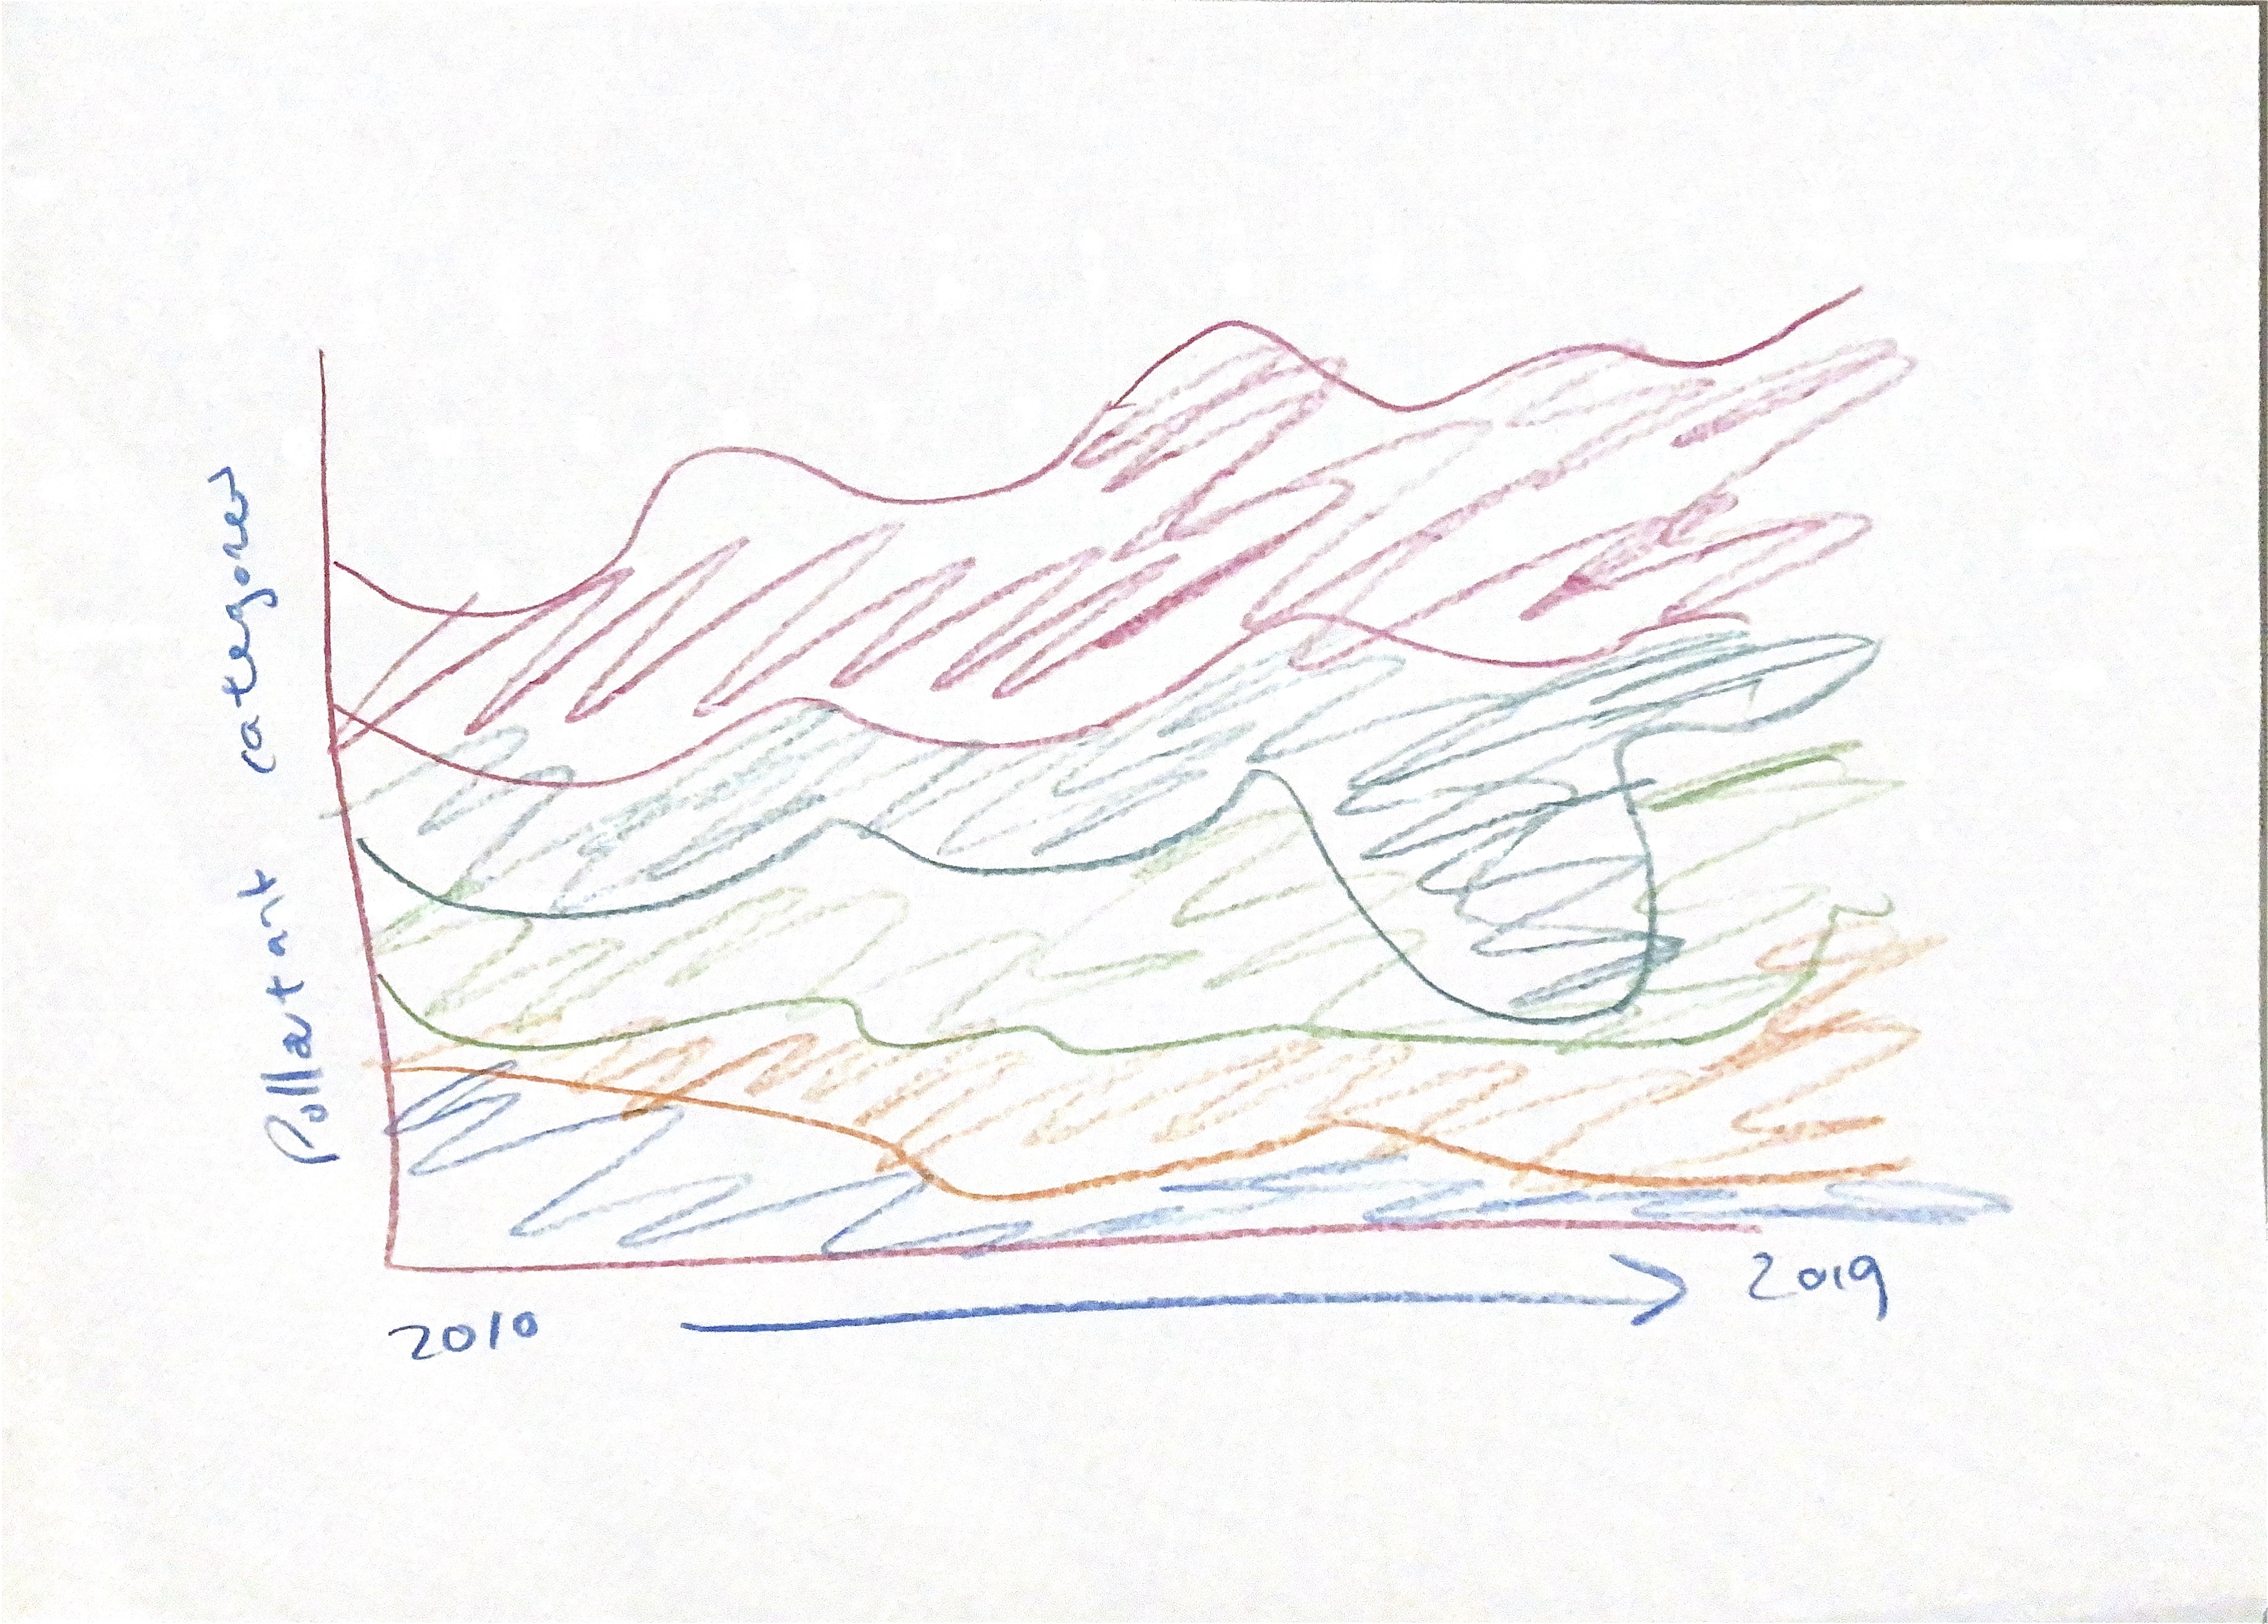 Pollartant categories
2010
2019